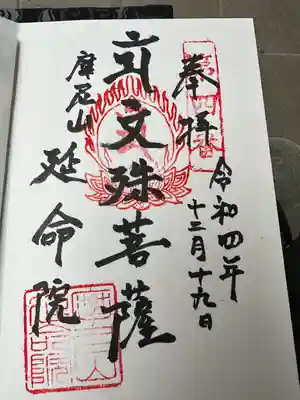 奉拝
令和四年
十二月十九日
文殊菩薩
摩尼山
延命院